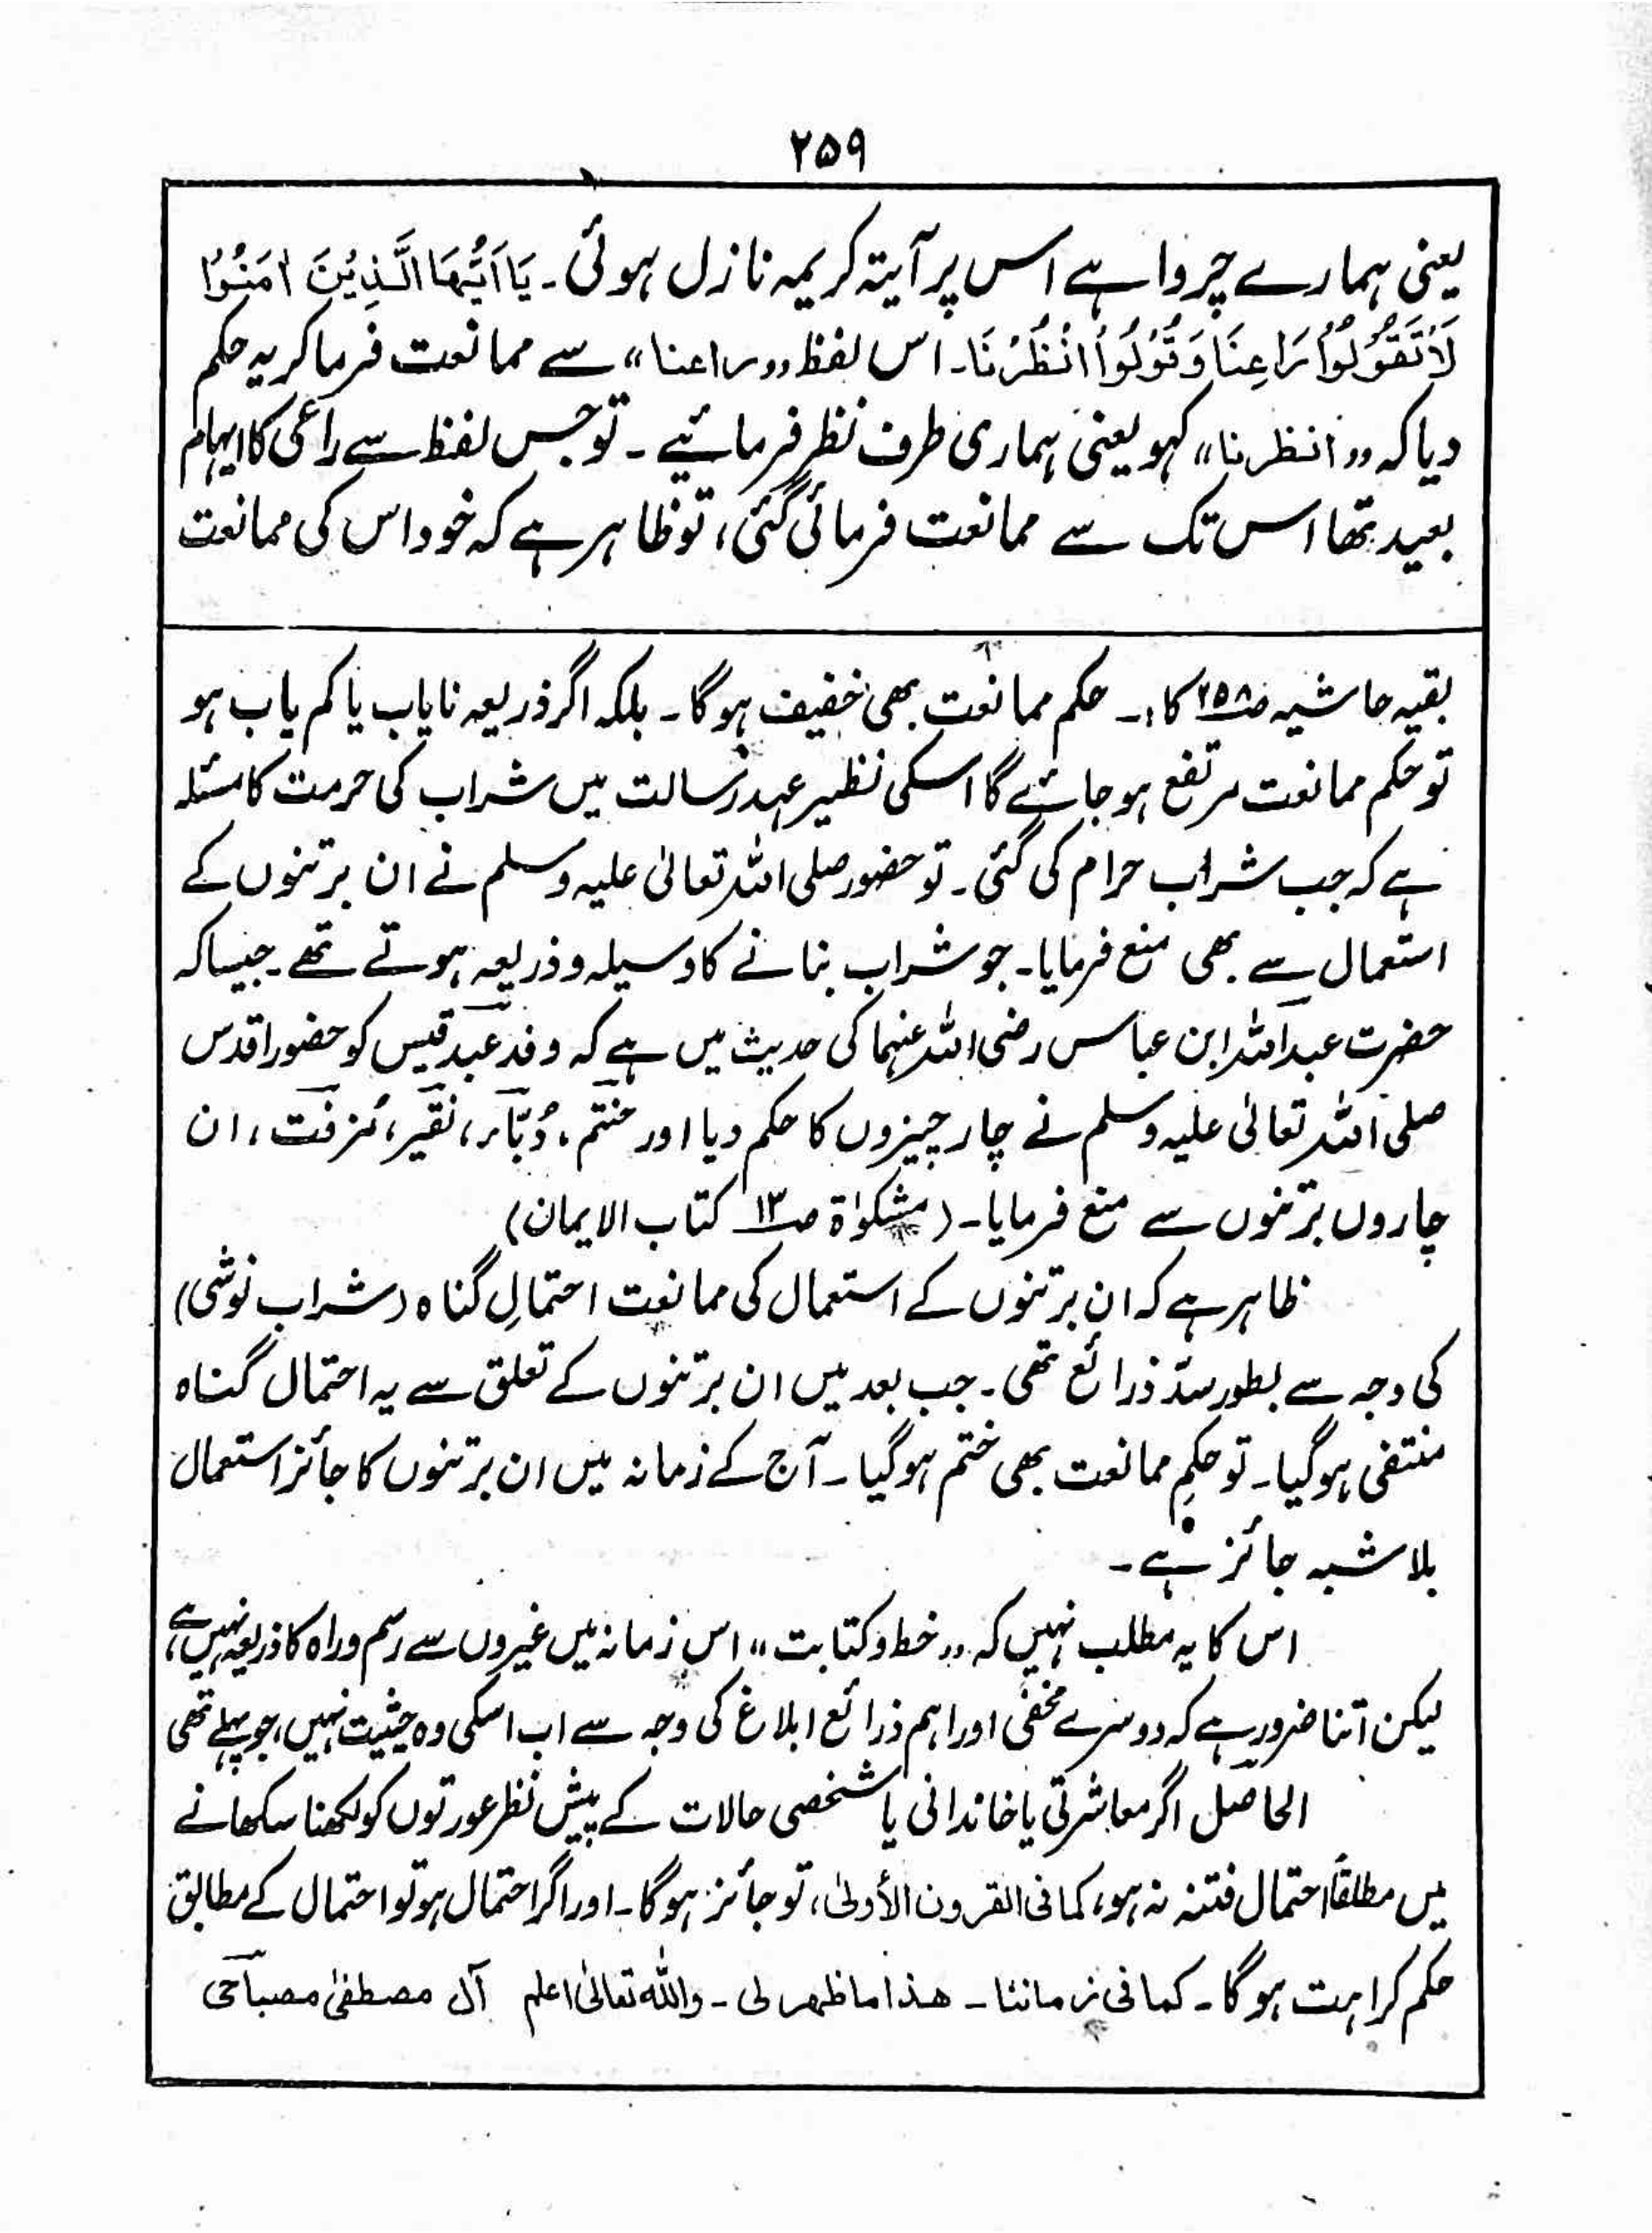 ۲۵۹
یعنی ہمارے چرواہے اس پر آیتہ کریمہ نازل ہوئی۔ یَا اَیُّهَا الَّذِیْنَ اٰمَنُوْا
لَاْتَقُوْلُوْا رَاعِنَا وَقُوْلُوْا انْظُرْنَا۔ اس لفظ ’’راعنا‘‘ سے ممانعت فرما کر یہ حکم
دیا کہ ’’انظرنا‘‘ کہو یعنی ہماری طرف نظر فرمائیے۔ تو جس لفظ سے راعی کا ایہام
بعید تھا اس تک سے ممانعت فرمائی گئی، تو ظاہر ہے کہ خود اس کی ممانعت
بقیہ حاشیہ ص۲۵۸ کا:۔ حکم ممانعت بھی خفیف ہوگا۔ بلکہ اگر ذریعہ نایاب یا کم یاب ہو
تو حکم ممانعت مرتفع ہو جائے گا اسکی نظیر عہد رسالت میں شراب کی حرمت کا مسئلہ
ہے کہ جب شراب حرام کی گئی۔ تو حضور صلی اللہ تعالیٰ علیہ وسلم نے ان برتنوں کے
استعمال سے بھی منع فرمایا۔ جو شراب بنانے کا وسیلہ و ذریعہ ہوتے تھے۔ جیسا کہ
حضرت عبداللہ ابن عباس رضی اللہ عنہما کی حدیث میں ہے کہ وفد عبد قیس کو حضور اقدس
صلی اللہ تعالیٰ علیہ وسلم نے چار چیزوں کا حکم دیا اور حنتم، دُبّاء، نقیر، مُزفت، ان
چاروں برتنوں سے منع فرمایا۔ (مشکوٰۃ ص۱۳ کتاب الایمان)
ظاہر ہے کہ ان برتنوں کے استعمال کی ممانعت احتمالِ گناہ (شراب نوشی)
کی وجہ سے بطور سدّ ذرائع تھی۔ جب بعد میں ان برتنوں کے تعلق سے یہ احتمال گناہ
منتفی ہوگیا۔ تو حکمِ ممانعت بھی ختم ہوگیا۔ آج کے زمانہ میں ان برتنوں کا جائز استعمال
بلاشبہ جائز ہے۔
اس کا یہ مطلب نہیں کہ ’’خط و کتابت‘‘ اس زمانہ میں غیروں سے رسم و راہ کا ذریعہ نہیں ہے،
لیکن اتنا ضرور ہے کہ دوسرے مخفی اور اہم ذرائع ابلاغ کی وجہ سے اب اسکی وہ حیثیت نہیں، جو پہلے تھی
الحاصل اگر معاشرتی یا خاندانی یا شخصی حالات کے پیش نظر عورتوں کو لکھنا سکھانے
میں مطلقاً احتمال فتنہ نہ ہو، کما فی القرون الأولیٰ، تو جائز ہوگا۔ اور اگر احتمال ہو تو احتمال کے مطابق
حکم کراہت ہوگا۔ کما فی زماننا۔ ھذا ما ظھر لی۔ واللہ تعالیٰ اعلم آل مصطفیٰ مصباحی